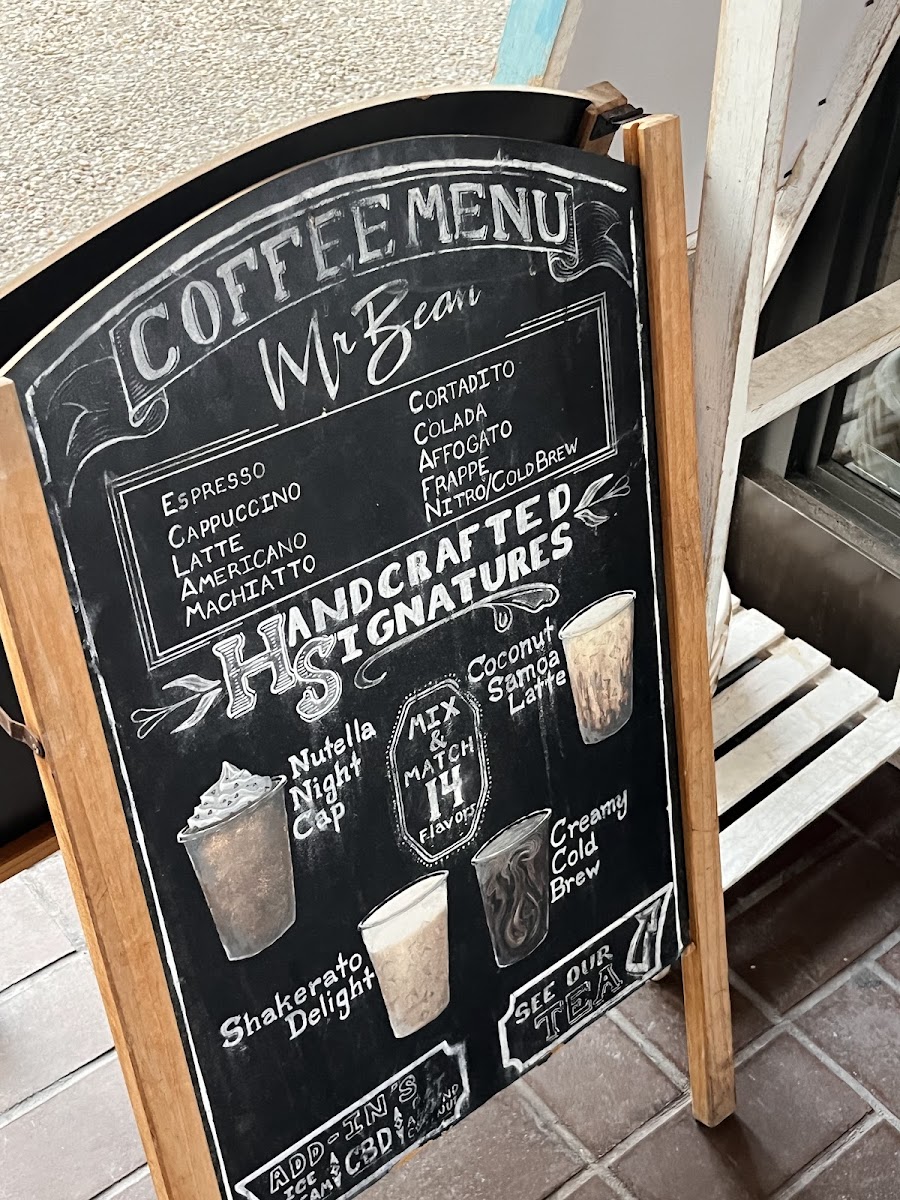 COFFEE MENU
Mr Bean
ESPRESSO
CAPPUCCINO
LATTE
AMERICANO
MACHIATTO
CORTADITO
COLADA
AFFOGATO
FRAPPE
NITRO/COLD BREW
HANDCRAFTED
SIGNATURES
Coconut
Samoa
Latte
Nutella
Night
Cap
MIX
&
MATCH
14
Flavors
Creamy
Cold
Brew
Shakerato
Delight
SEE OUR
TEA
ADD-IN'S
ICE
CBD